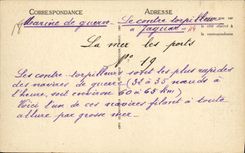 CORRESPONDANCE
ADRESSE
Marine de guerre - Le contre torpilleur
"Jaguar"
La mer les ports
N° 19
Les contre-torpilleurs sont les plus rapides
des navires de guerre (32 à 35 nœuds à
l'heure, soit environ 60 à 65 km)
Voici l'un de ces navires filant à toute
allure par grosse mer.